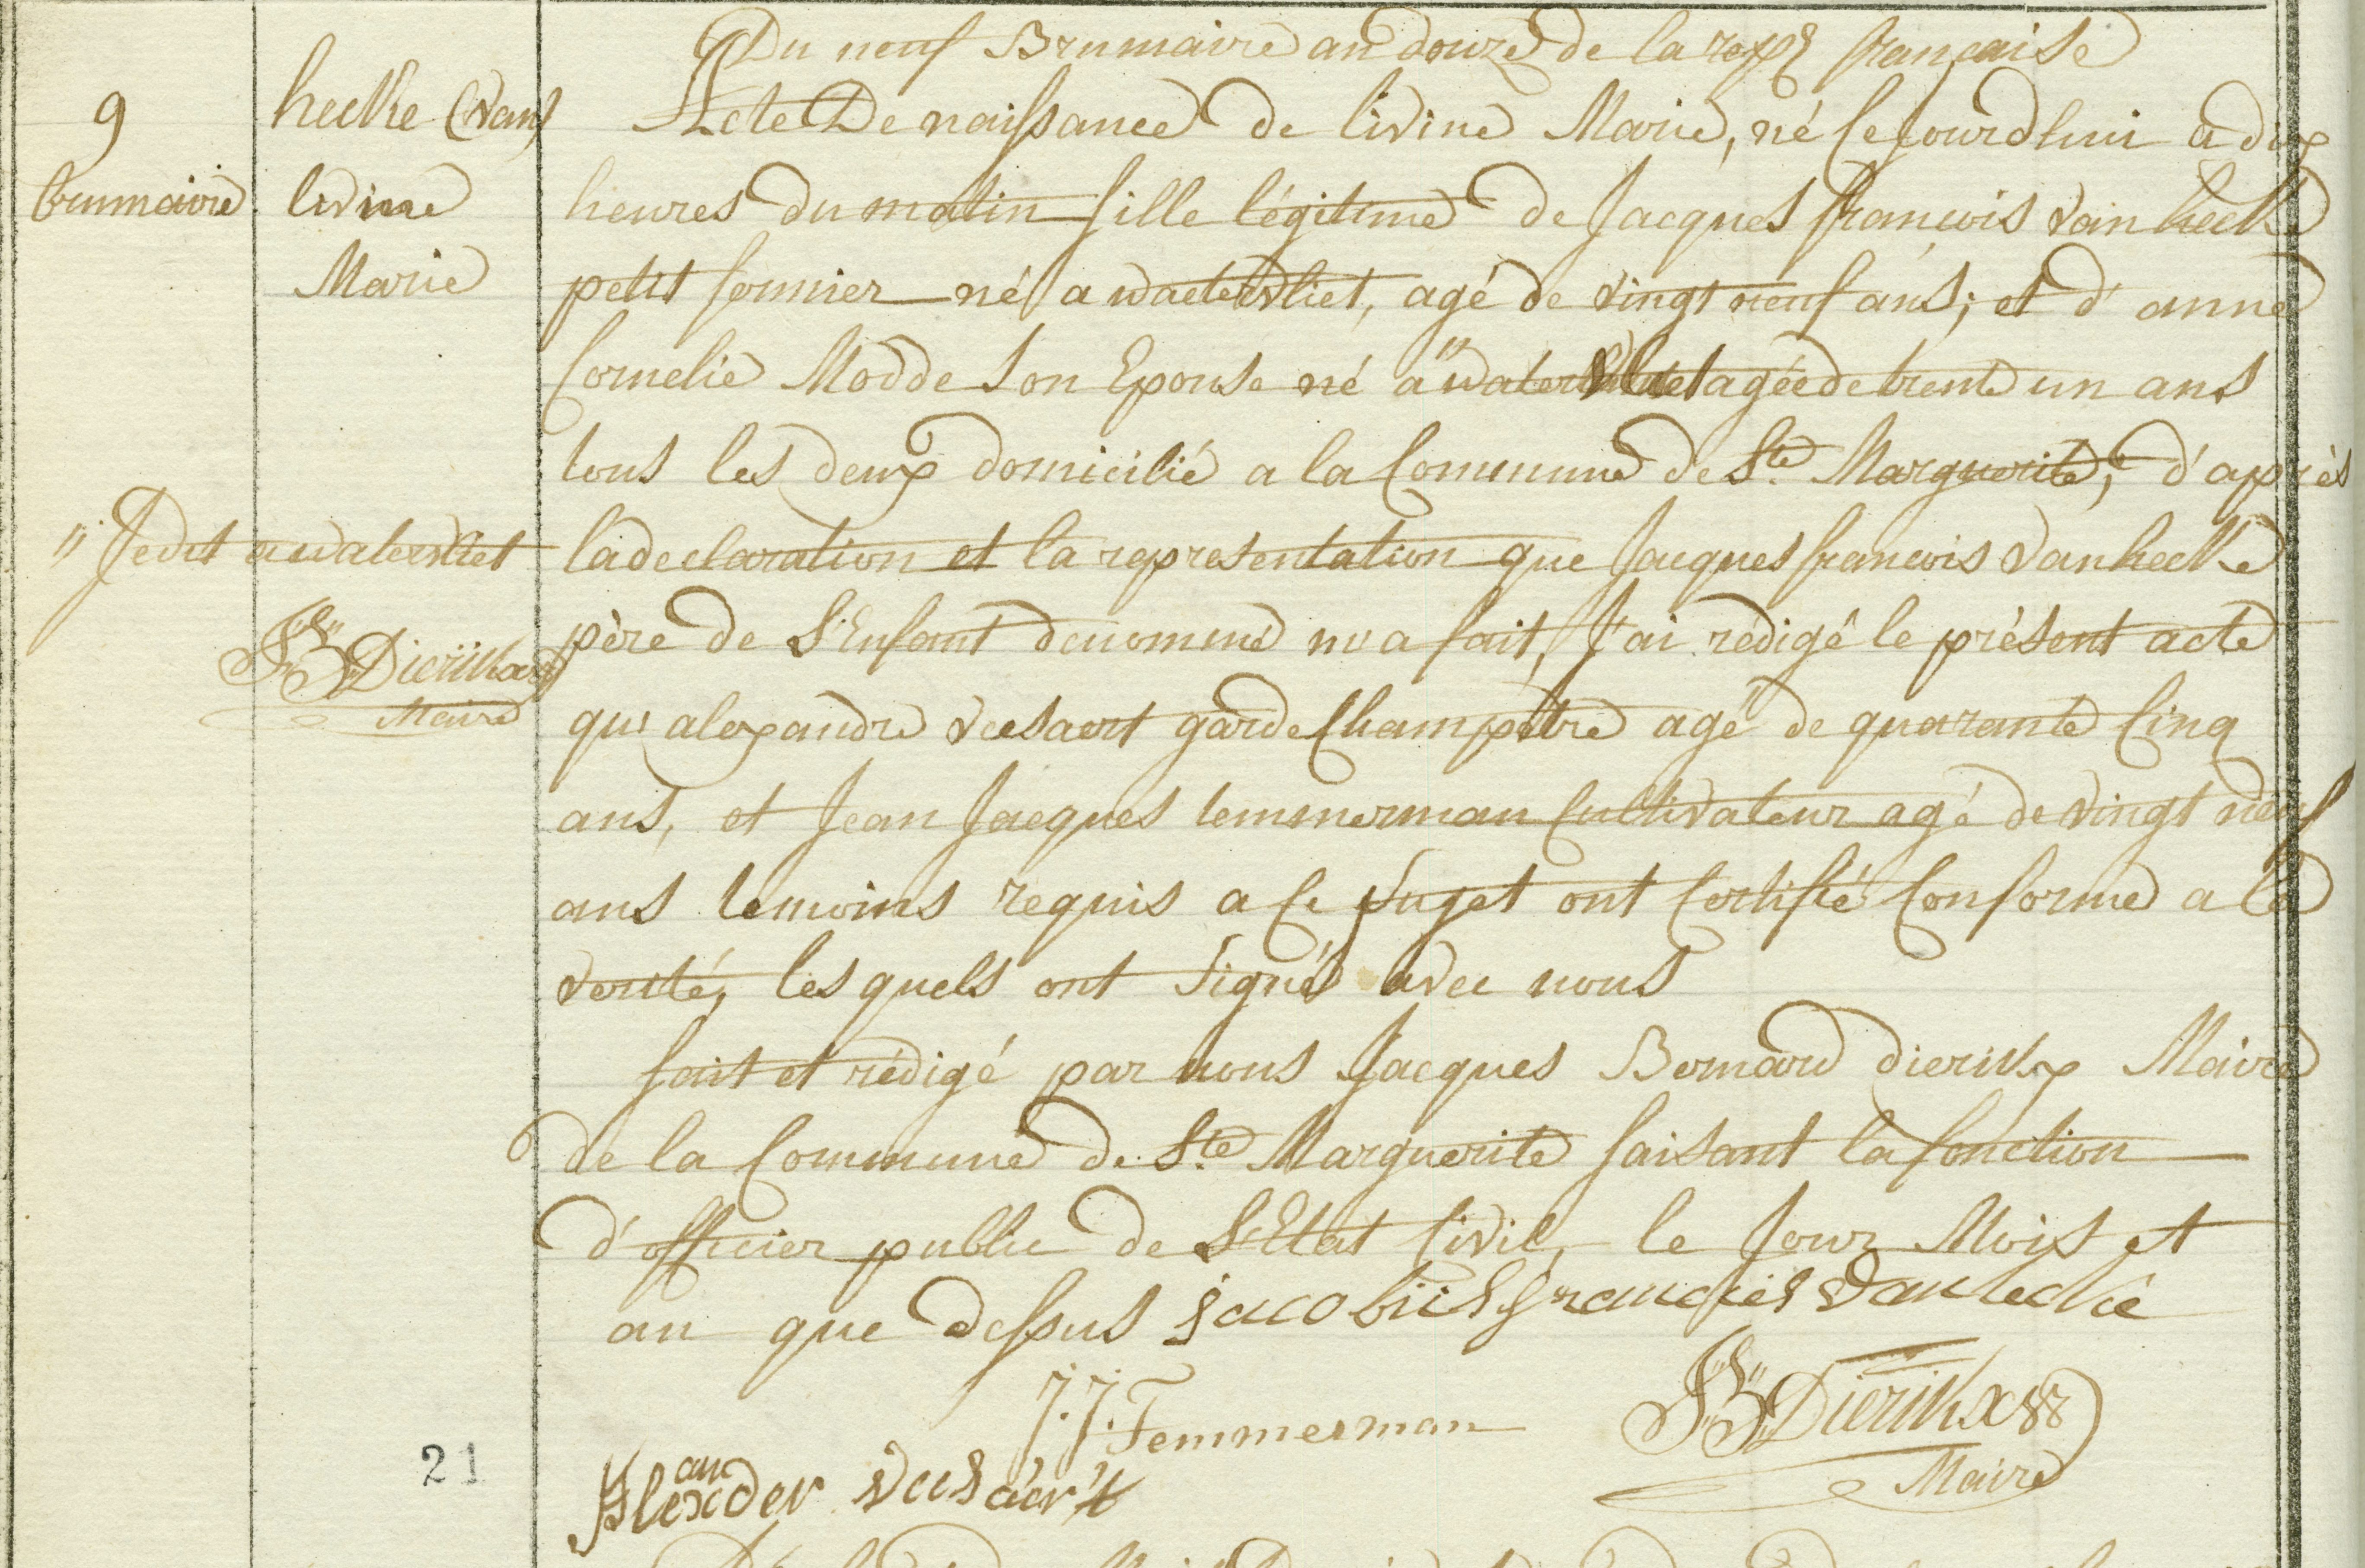 Du neuf Brumaire an douze de la rep. française
9
brumaire
hecke (van)
livine
Marie
Acte De naissance de livine Marie, né Cejourdhui a dix
heures du matin fille légitime de Jacques francois van hecke
petit fermier né a watervliet, agé de vingt neuf ans; et d'anne
Cornelie Modde Son Epouse né a " agée de trente un ans
tous les deux domicilié a la Commune de Ste. Marguerite, d'après
" Je dit a watervliet
JB Dierikx
Maire
la declaration et la representation que Jacques francois Vanhecke
père de L'Enfant denommé m'a fait, J'ai rédigé le présent acte
qu'alexandre Veesaert garde Champêtre agé de quarante Cinq
ans, et Jean Jacques temmerman Cultivateur agé de vingt neuf
ans temoins requis a Ce Sujet ont Certifié Conforme a la
verité, les quels ont Signés avec nous
fait et rédigé par nous Jacques Bernard dierikx Maire
de la Commune de Ste. Marguerite faisant la fonction
d'officier public de L'Etat Civil, le Jour Mois et
an que dessus jacobus francies van hecke
J.J. Temmerman
JB Dierikx
Maire
Alexander Veesaert
21